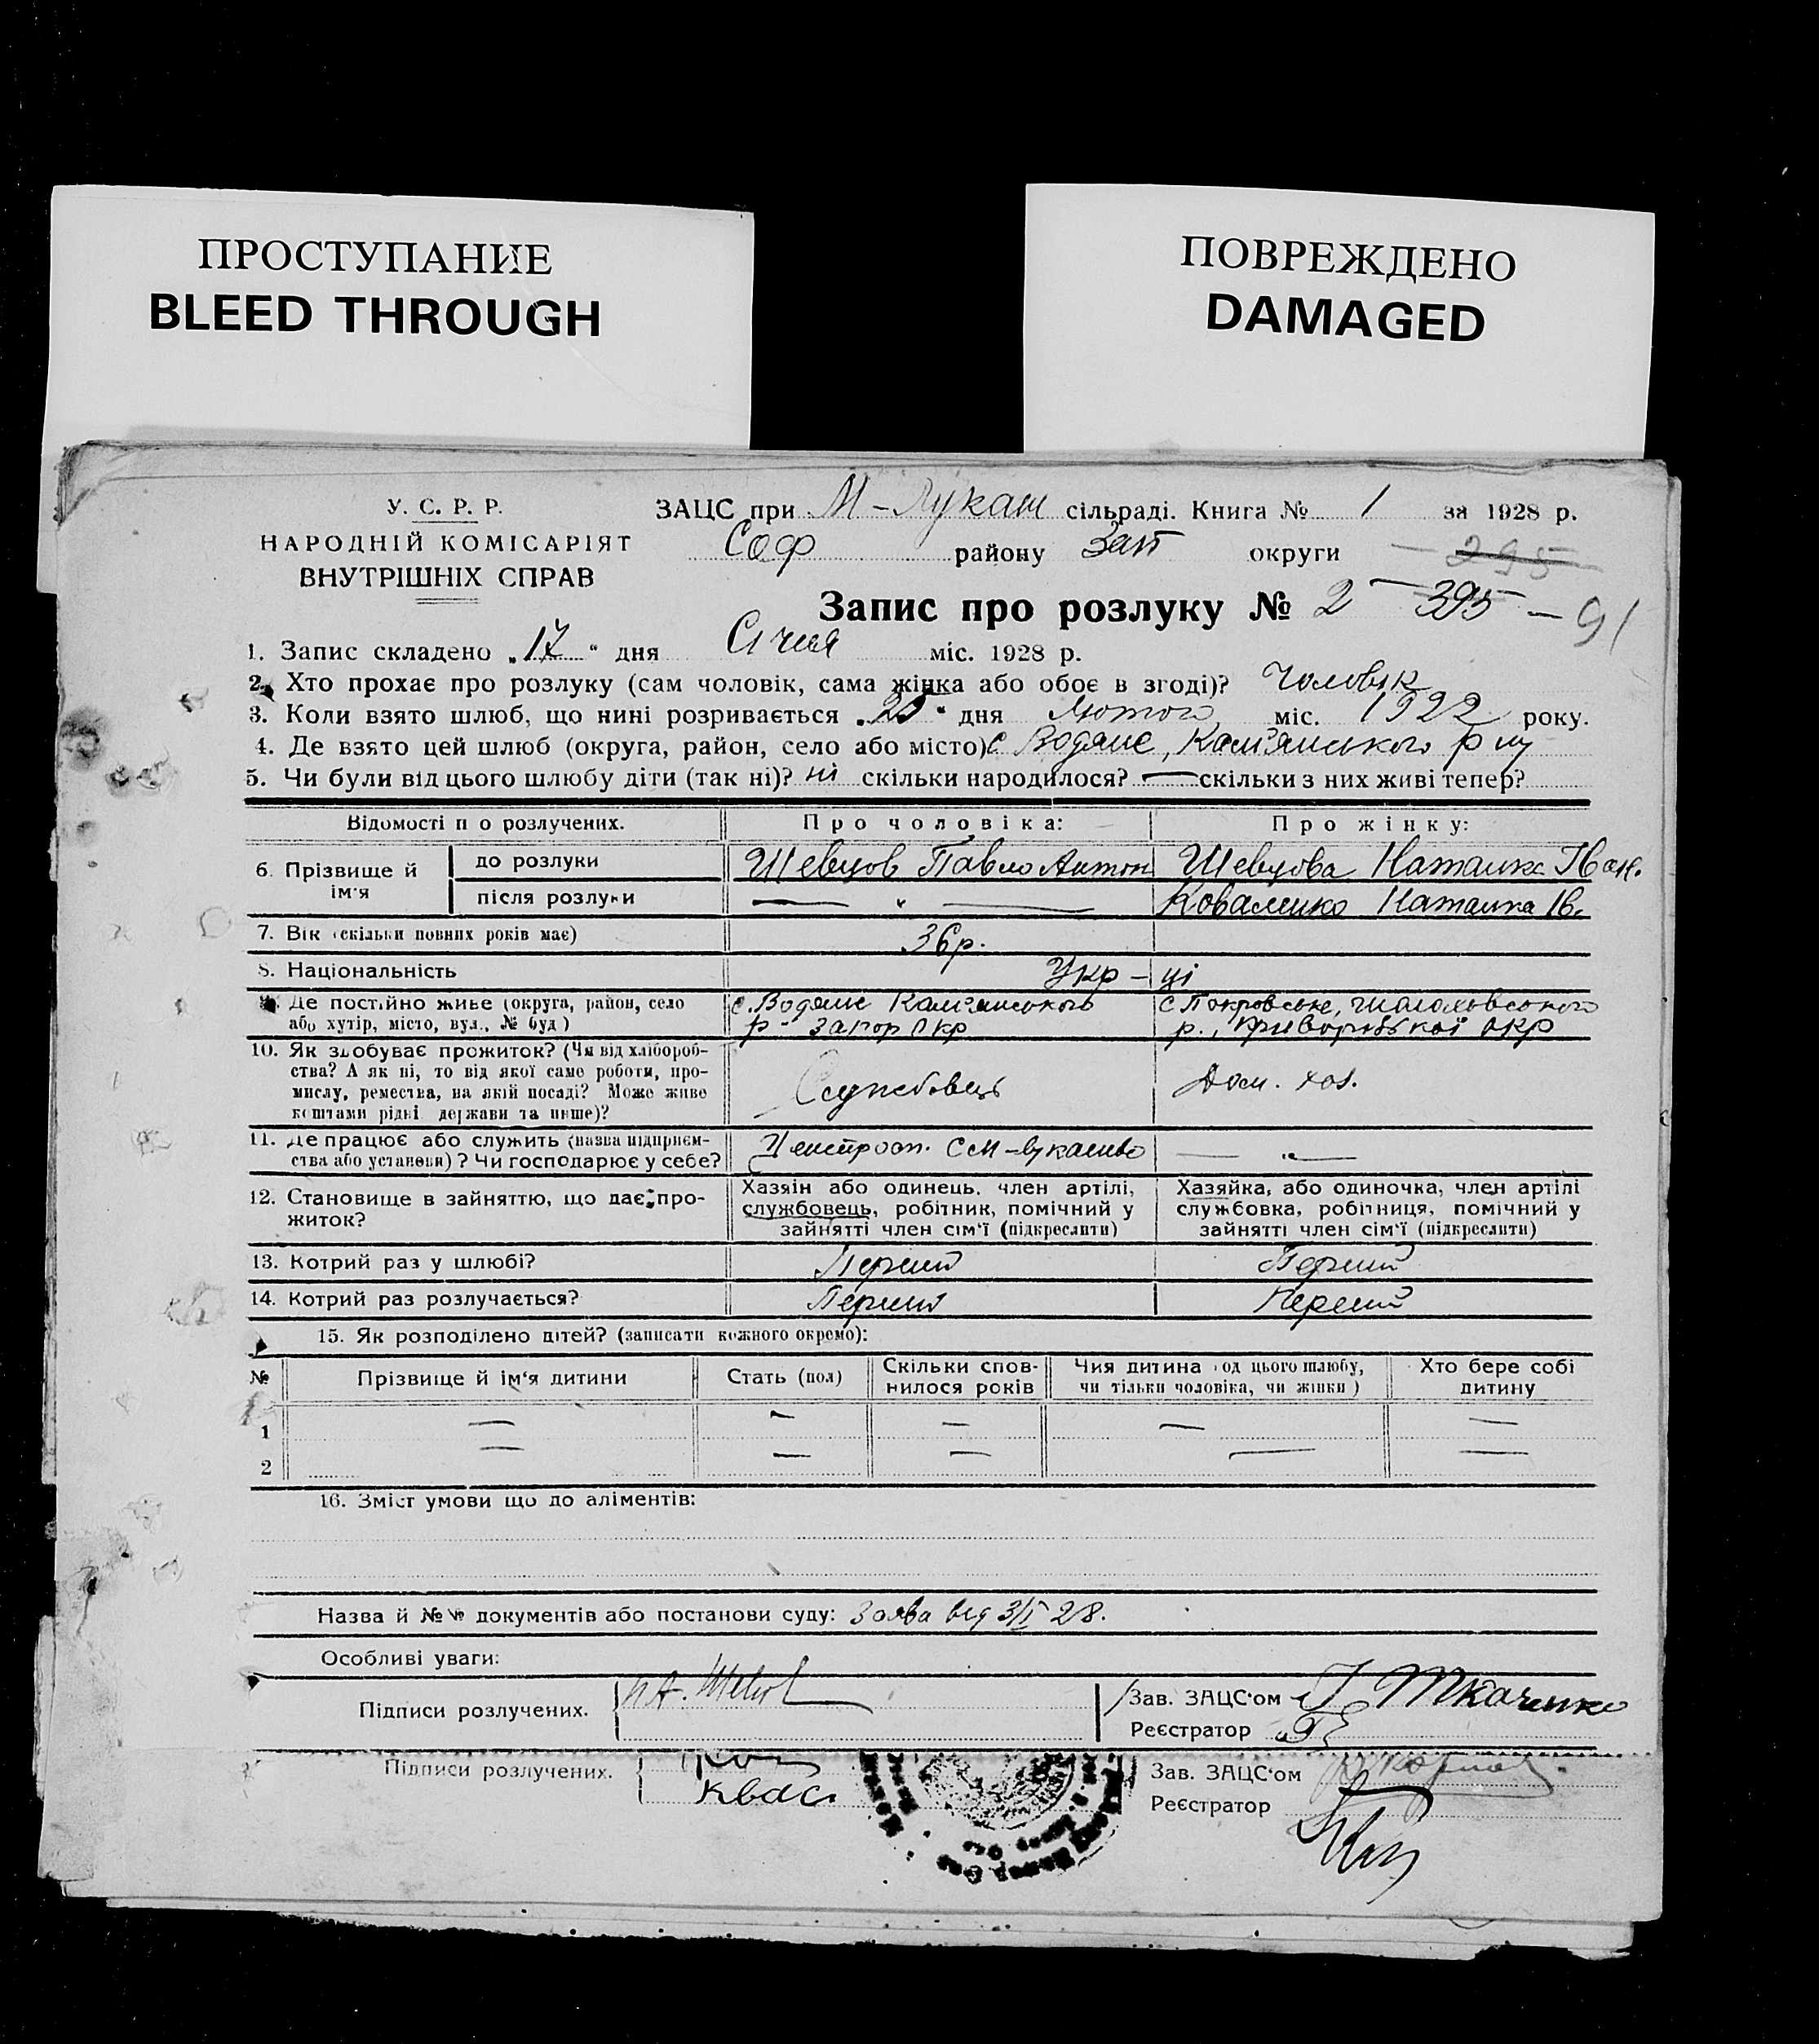 ПРОСТУПАНИЕ
BLEED THROUGH
ПОВРЕЖДЕНО
DAMAGED
У. С. Р. Р.
НАРОДНІЙ КОМІСАРІЯТ
ВНУТРІШНІХ СПРАВ
ЗАЦС при М-Лукаш сільраді. Книга № 1 за 1928 р.
Соф району Зап округи 295
Запис про розлуку № 2 395 - 91
1. Запис складено „17“ дня Січня міс. 1928 р.
2. Хто прохає про розлуку (сам чоловік, сама жінка або обоє в згоді)? Чоловік
3. Коли взято шлюб, що нині розривається „25“ дня Лютого міс. 1922 року.
4. Де взято цей шлюб (округа, район, село або місто) с Водяне, Кам'янського р ну
5. Чи були від цього шлюбу діти (так ні)? ні скільки народилося? — скільки з них живі тепер?
Відомості п о розлучених. Про чоловіка: Про жінку:
6. Прізвище й ім'я
до розлуки Шевцов Павло Антон Шевцова Наталка Іван.
після розлуки — „ — Коваленко Наталка Ів.
7. Вік (скільки повних років має) 36 р.
8. Національність Укр - ці
9. Де постійно живе (округа, район, село
або хутір, місто, вул., № буд)
с. Водяне Кам'янського
р - Запор Окр
с Покровське, Шолоховського
р., Криворізької окр
10. Як здобуває прожиток? (Чи від хлібороб-
ства? А як ні, то від якої саме роботи, про-
мислу, ремества, на якій посаді? Може живе
коштами рідні держави та инше)?
Службовець
Дом. хоз.
11. Де працює або служить (назва підприєм-
ства або установи)? Чи господарює у себе?
с М-Лукашево
— „ —
12. Становище в зайняттю, що дає про-
житок?
Хазяїн або одинець, член артілі,
службовець, робітник, помічний у
зайнятті член сім'ї (підкреслити)
Хазяйка, або одиночка, член артілі
службовка, робітниця, помічний у
зайнятті член сім'ї (підкреслити)
13. Котрий раз у шлюбі? Перший Перший
14. Котрий раз розлучається? Перший Перший
15. Як розподілено дітей? (записати кожного окремо):
№ Прізвище й ім'я дитини Стать (пол) Скільки спов-
нилося років Чия дитина (од цього шлюбу,
чи тільки чоловіка, чи жінки) Хто бере собі
дитину
1 — — — — —
2 — — — — —
16. Зміст умови що до аліментів:
Назва й №№ документів або постанови суду: Заява від 3/I 28.
Особливі уваги:
Підписи розлучених. П А. Шевц
Зав. ЗАЦС'ом Ткаченко
Реєстратор
Підписи розлучених.
Квас
Зав. ЗАЦС'ом
Реєстратор